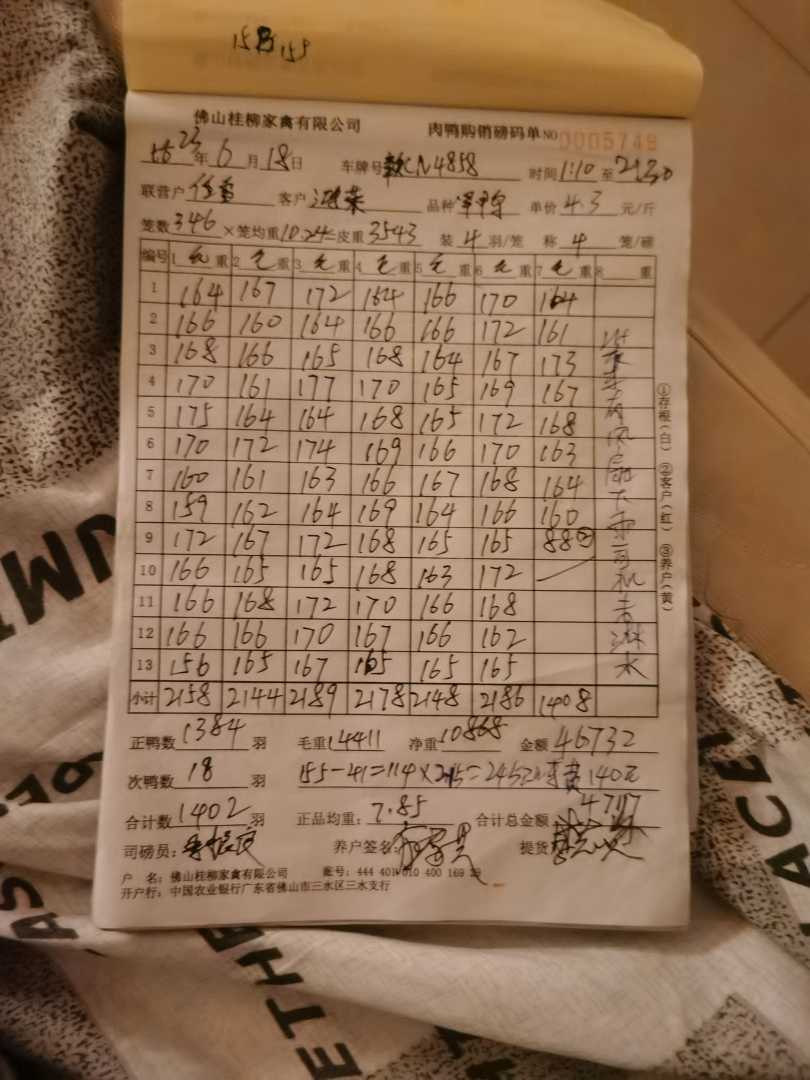 155
佛山桂柳家禽有限公司 肉鸭购销磅码单 NO 0005749
23年6月18日 车牌号 N4858 时间1:10至2:30
联营户 客户 鸿荣 品种 单价4.3元/斤
笼数346×笼均重10.24=皮重3543 装4羽/笼 称4笼/磅
编号 1毛重 2毛重 3毛重 4毛重 5毛重 6毛重 7毛重 8 重
1 164 167 172 164 166 170 164
2 166 160 164 166 166 172 161
3 168 166 165 168 164 167 173
4 170 161 177 170 165 169 167
5 175 164 164 168 165 172 168
6 170 172 174 169 166 170 163
7 160 161 163 166 167 168 164
8 159 162 164 169 164 166 160
9 172 167 172 168 165 165 88②
10 166 165 165 168 163 172
11 166 168 172 170 166 168
12 166 166 170 167 166 162
13 156 165 167 165 165 165
小计 2158 2144 2189 2178 2148 2186 1408
风扇下雨司机 淋水
①存根(白) ②客户(红) ③养户(黄)
正鸭数1384羽 毛重14411 净重10868 金额46732
次鸭数18羽 155-41=114×2.15=245元 费140元
合计数1402羽 正品均重:7.85 合计总金额
司磅员: 养户签名: 提货
户 名:佛山桂柳家禽有限公司 账号:444 401 010 400 169 29
开户行:中国农业银行广东省佛山市三水区三水支行
UMI
ACE
AS
ETHE